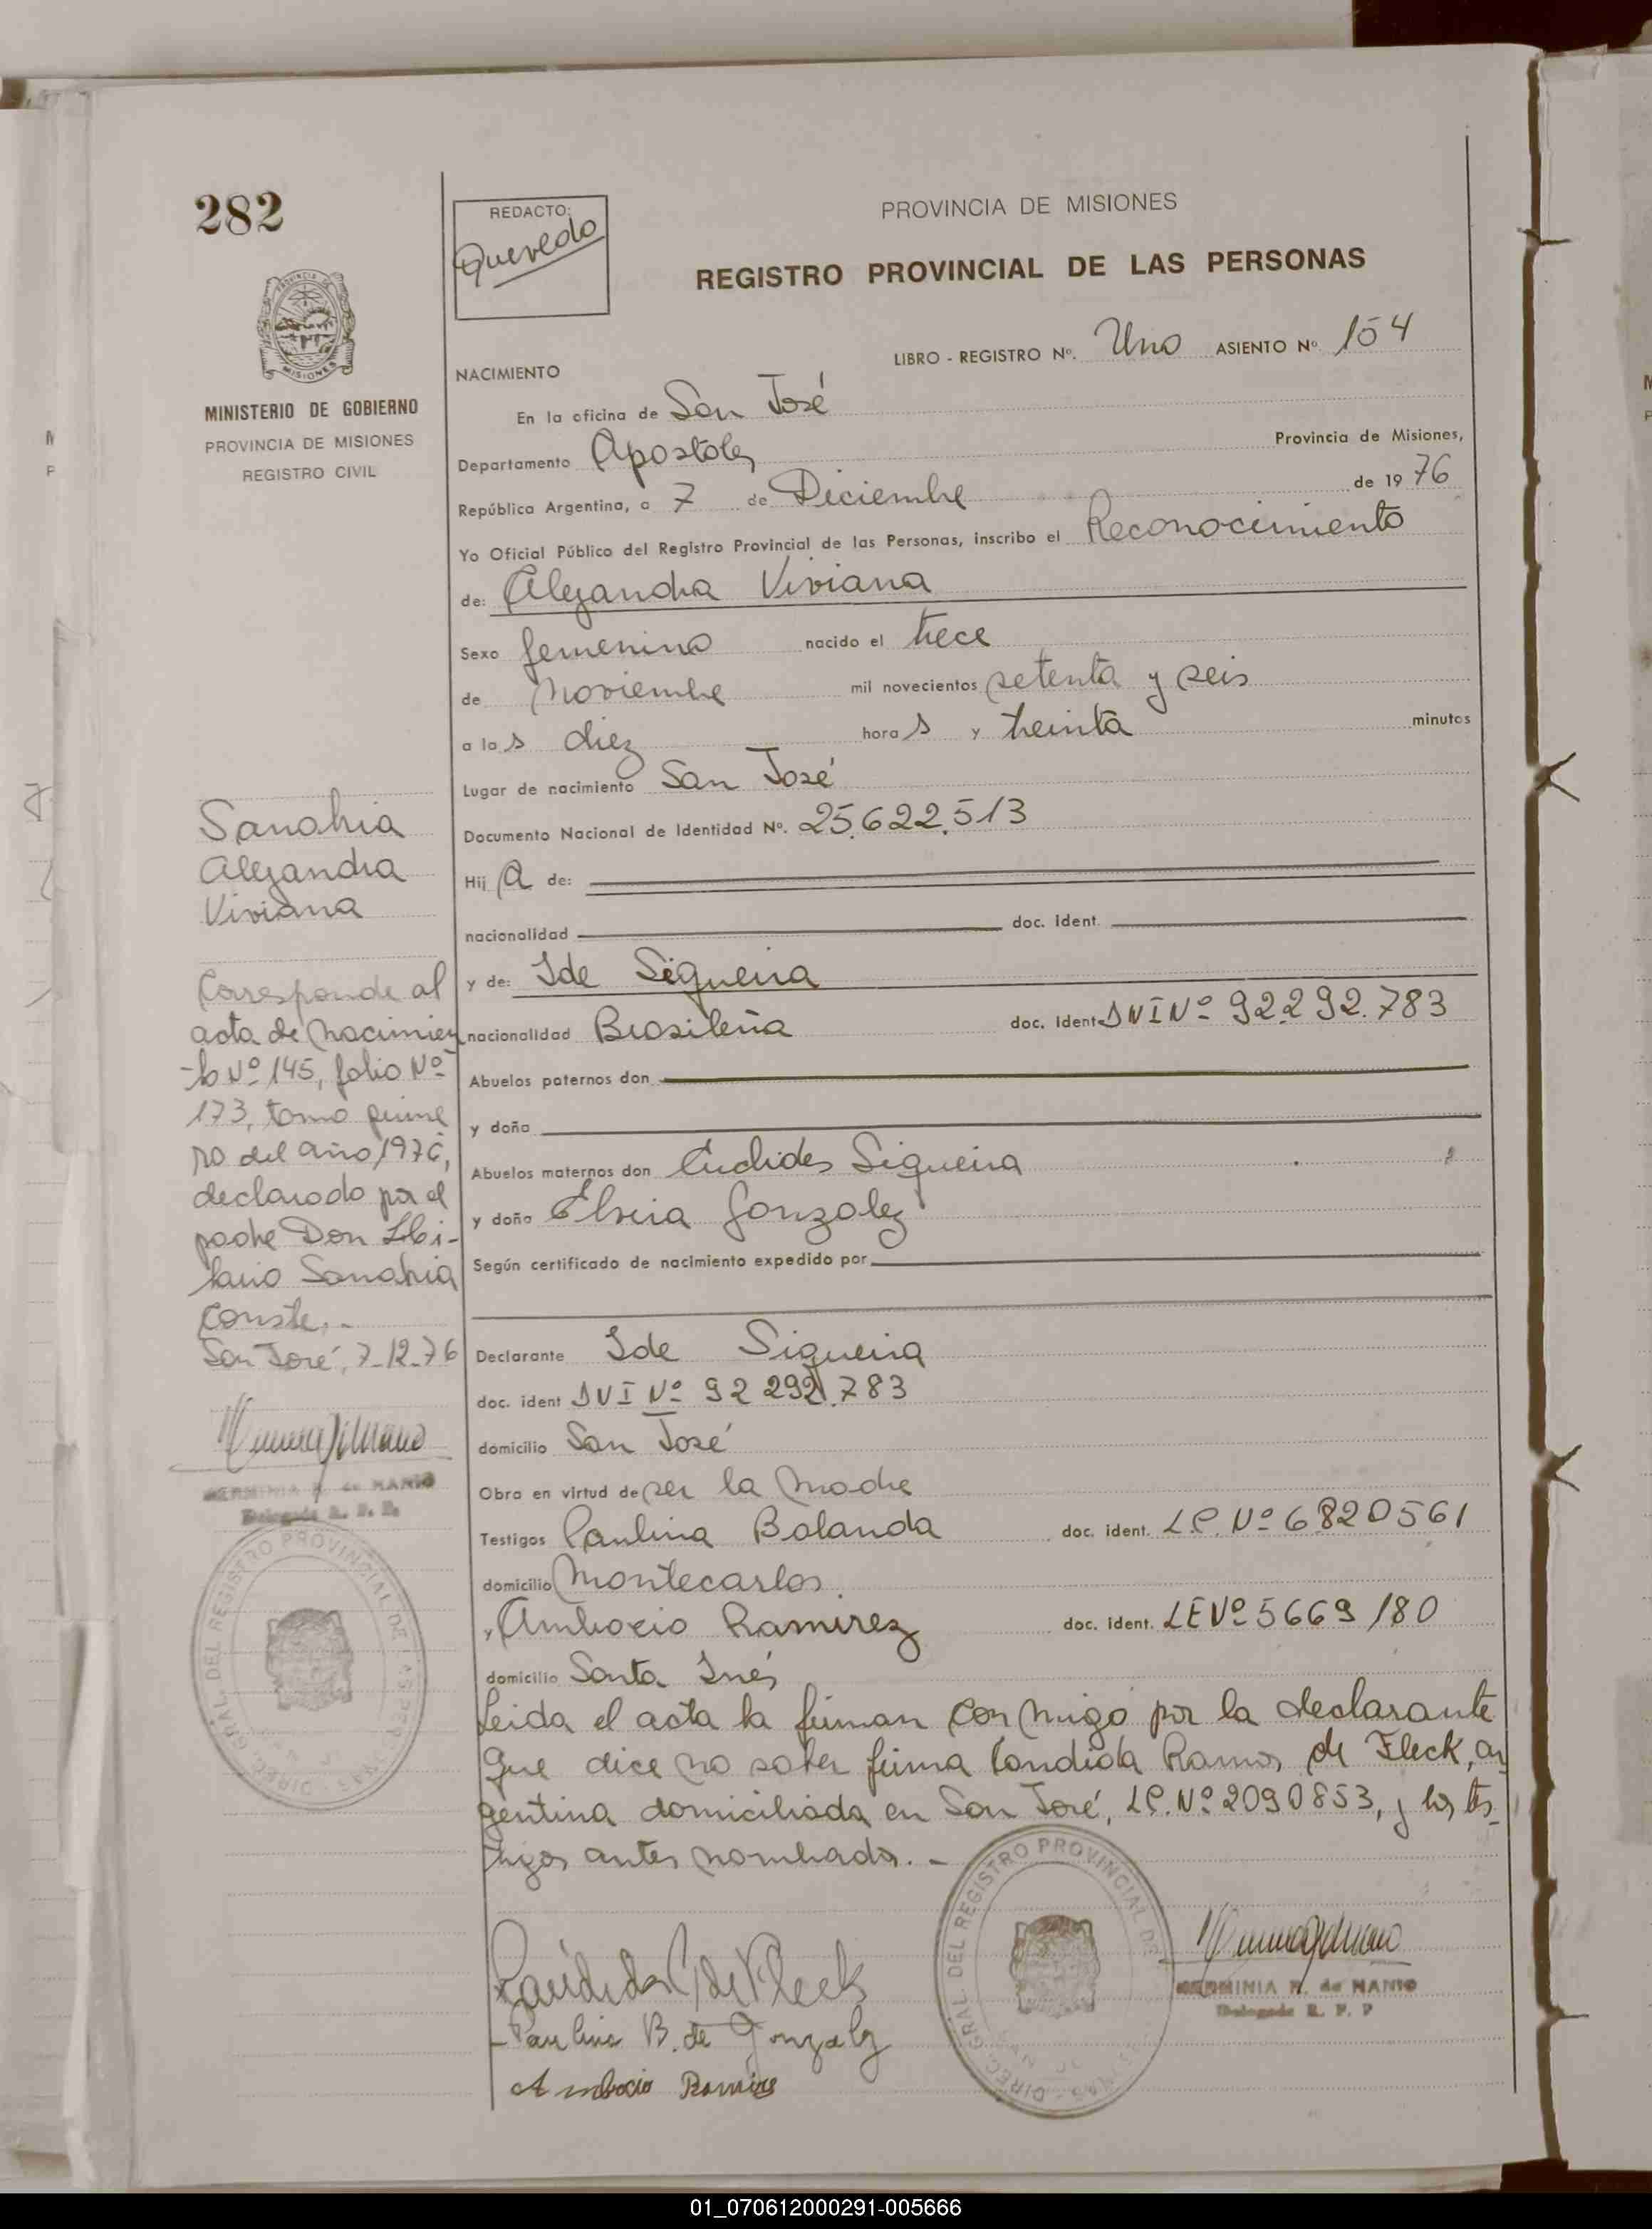 282
REDACTO:
Quevedo
PROVINCIA DE MISIONES
REGISTRO PROVINCIAL DE LAS PERSONAS
LIBRO - REGISTRO Nº. Uno ASIENTO Nº 154
MINISTERIO DE GOBIERNO
PROVINCIA DE MISIONES
REGISTRO CIVIL
NACIMIENTO
En la oficina de San José
Departamento Apostoles Provincia de Misiones,
República Argentina, a 7 de Diciembre de 1976
Yo Oficial Público del Registro Provincial de las Personas, inscribo el Reconocimiento
de: Alejandra Viviana
Sexo femenino nacido el trece
de noviembre mil novecientos setenta y seis
a las diez horas y treinta minutos
Lugar de nacimiento San José
Documento Nacional de Identidad Nº. 25.622.513
Hija de:
nacionalidad doc. ident.
y de: Ide Siqueira
nacionalidad Brasileña doc. ident DNI Nº 92.292.783
Abuelos paternos don
y doña
Abuelos maternos don Euclides Siqueira
y doña Elveia Gonzalez
Según certificado de nacimiento expedido por
Declarante Ide Siqueira
doc. ident DNI Nº 92 292.783
domicilio San José
Obra en virtud de ser la madre
Testigos Paulina Balanda doc. ident. L.C. Nº 6820561
domicilio Montecarlos.
y Ambrocio Ramirez doc. ident. LE Nº 5669180
domicilio Santa Inés
Leida el acta la firman con migo por la declarante
que dice no saber firma Candida Ramos de Fleck, ar
gentina domiciliada en San José, LC. Nº 2090853, y los tes-
tigos antes nombrados. -
Sanabria
Alejandra
Viviana
Corresponde al
acta de nacimien
-to Nº 145, folio Nº
173, tomo prime
ro del año 1976,
declarado por el
padre Don Hi-
lario Sanabria
Conste.-
San José, 7-12-76
HERMINIA R. de NANIO
Delegada R. P. P.
DIREC. GRAL. DEL REGISTRO PROVINCIAL DE LAS PERSONAS
Candida de Fleck
Paulina B. de Gonzalez
Ambrocio Ramirez
DIREC. GRAL. DEL REGISTRO PROVINCIAL DE LAS PERSONAS
HERMINIA R. de NANIO
Delegada R. P. P
01_070612000291-005666